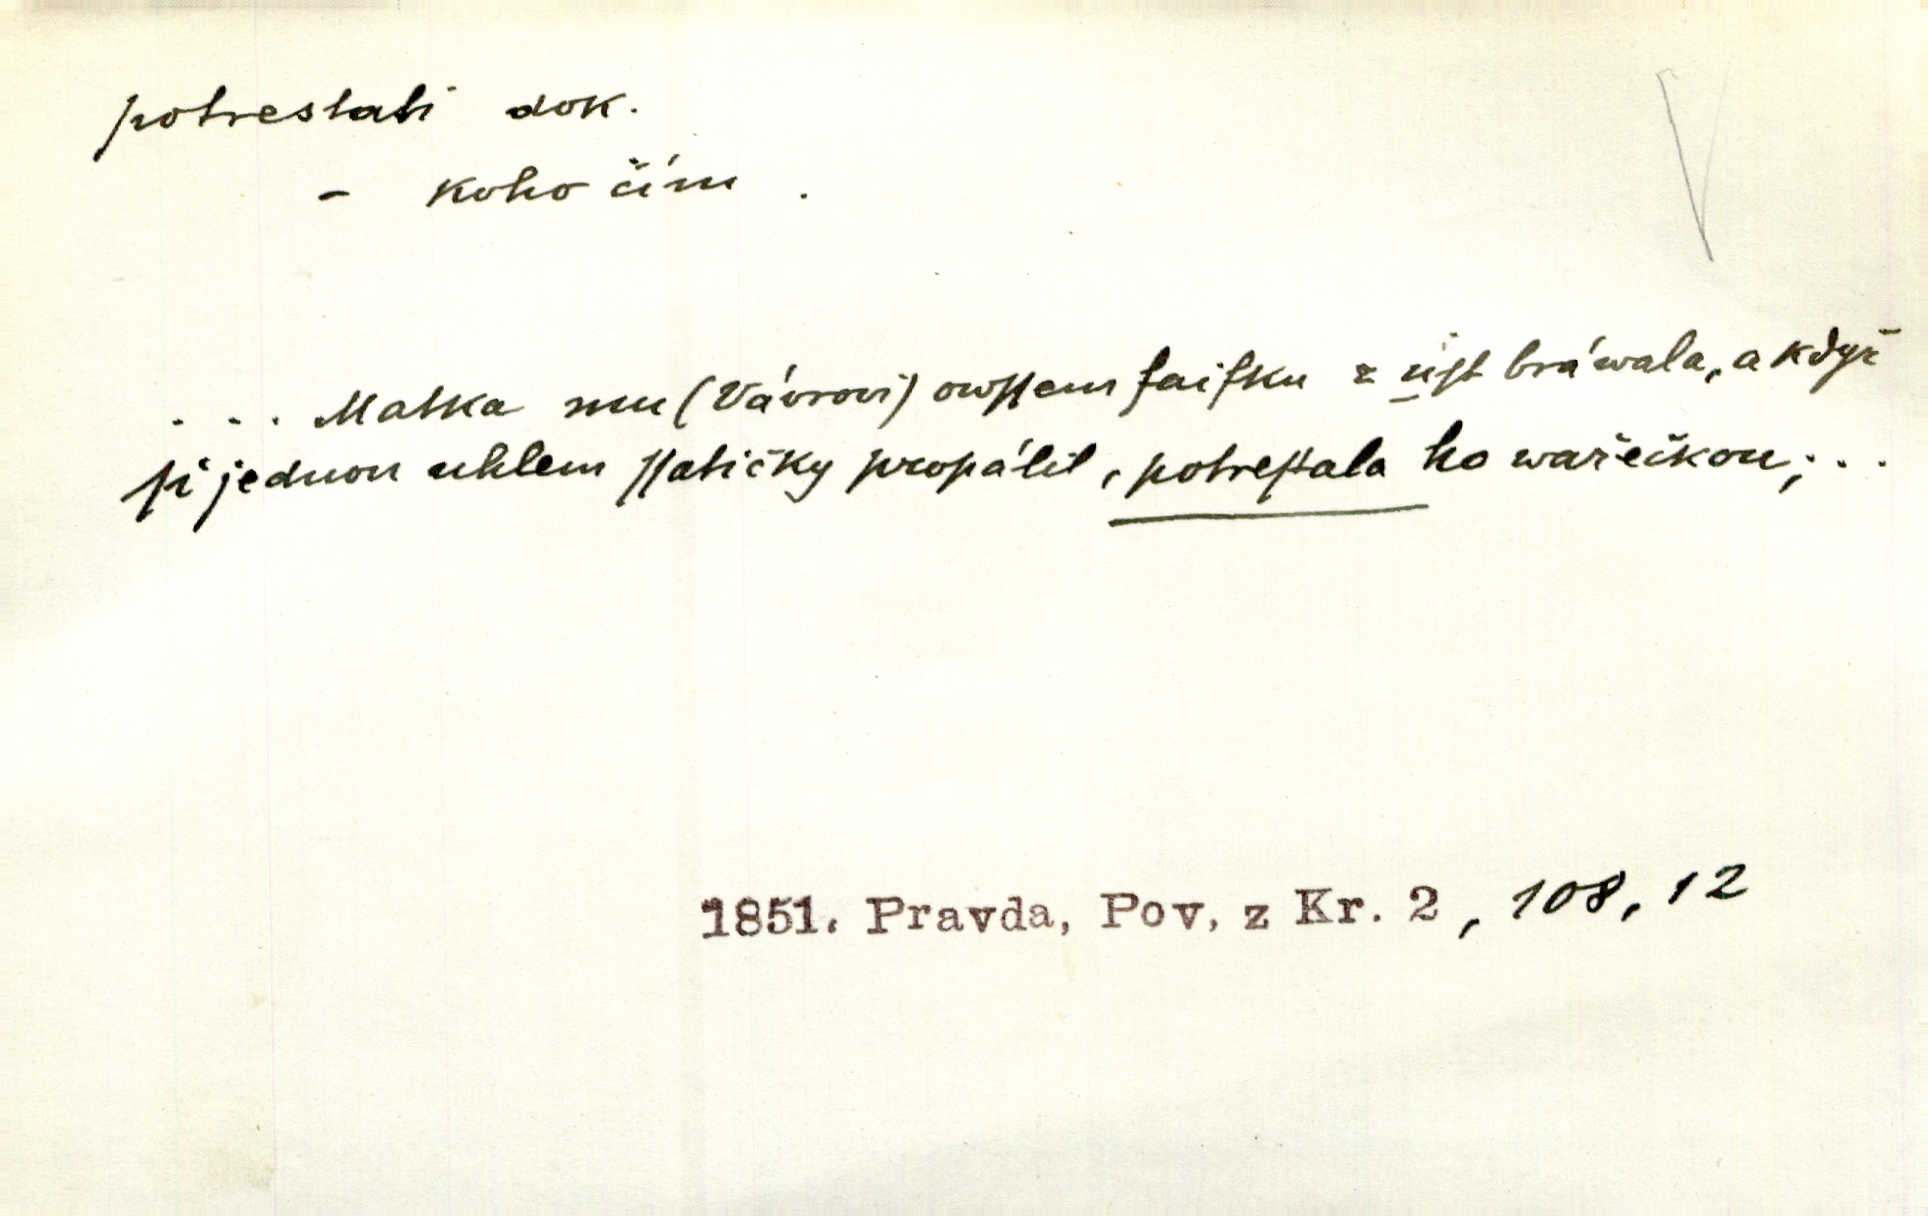 potrestati dok.
- koho čím .
. . . Matka mu (Vávrovi) owſſem faifku z úſt bráwala, a když
ſi jednou uhlem ſſatičky propálil, potreſtala ho wařečkou; . .
1851. Pravda, Pov. z Kr. 2, 108, 12